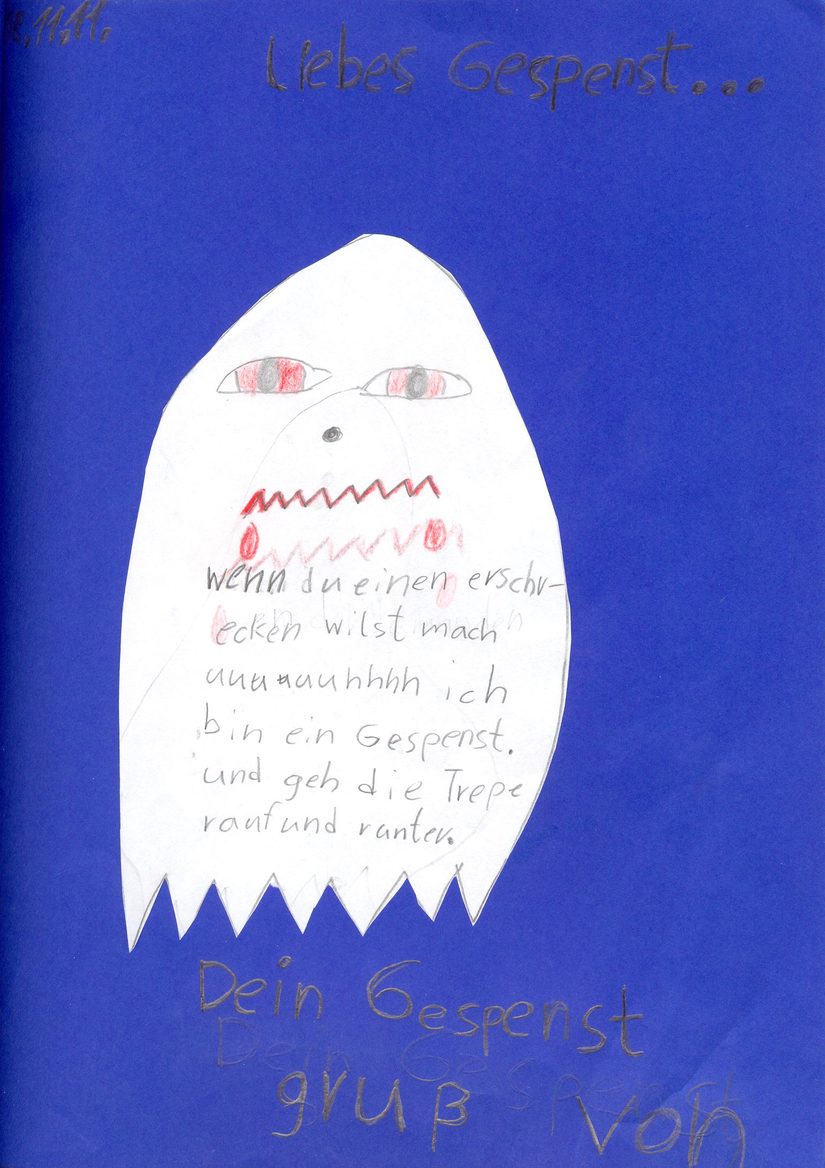 Liebes Gespenst...
wenn du einen erschr-
ecken wilst mach
uuuuuuhhhh ich
bin ein Gespenst.
und geh die Trepe
rauf und runter.
Dein Gespenst
gruß von